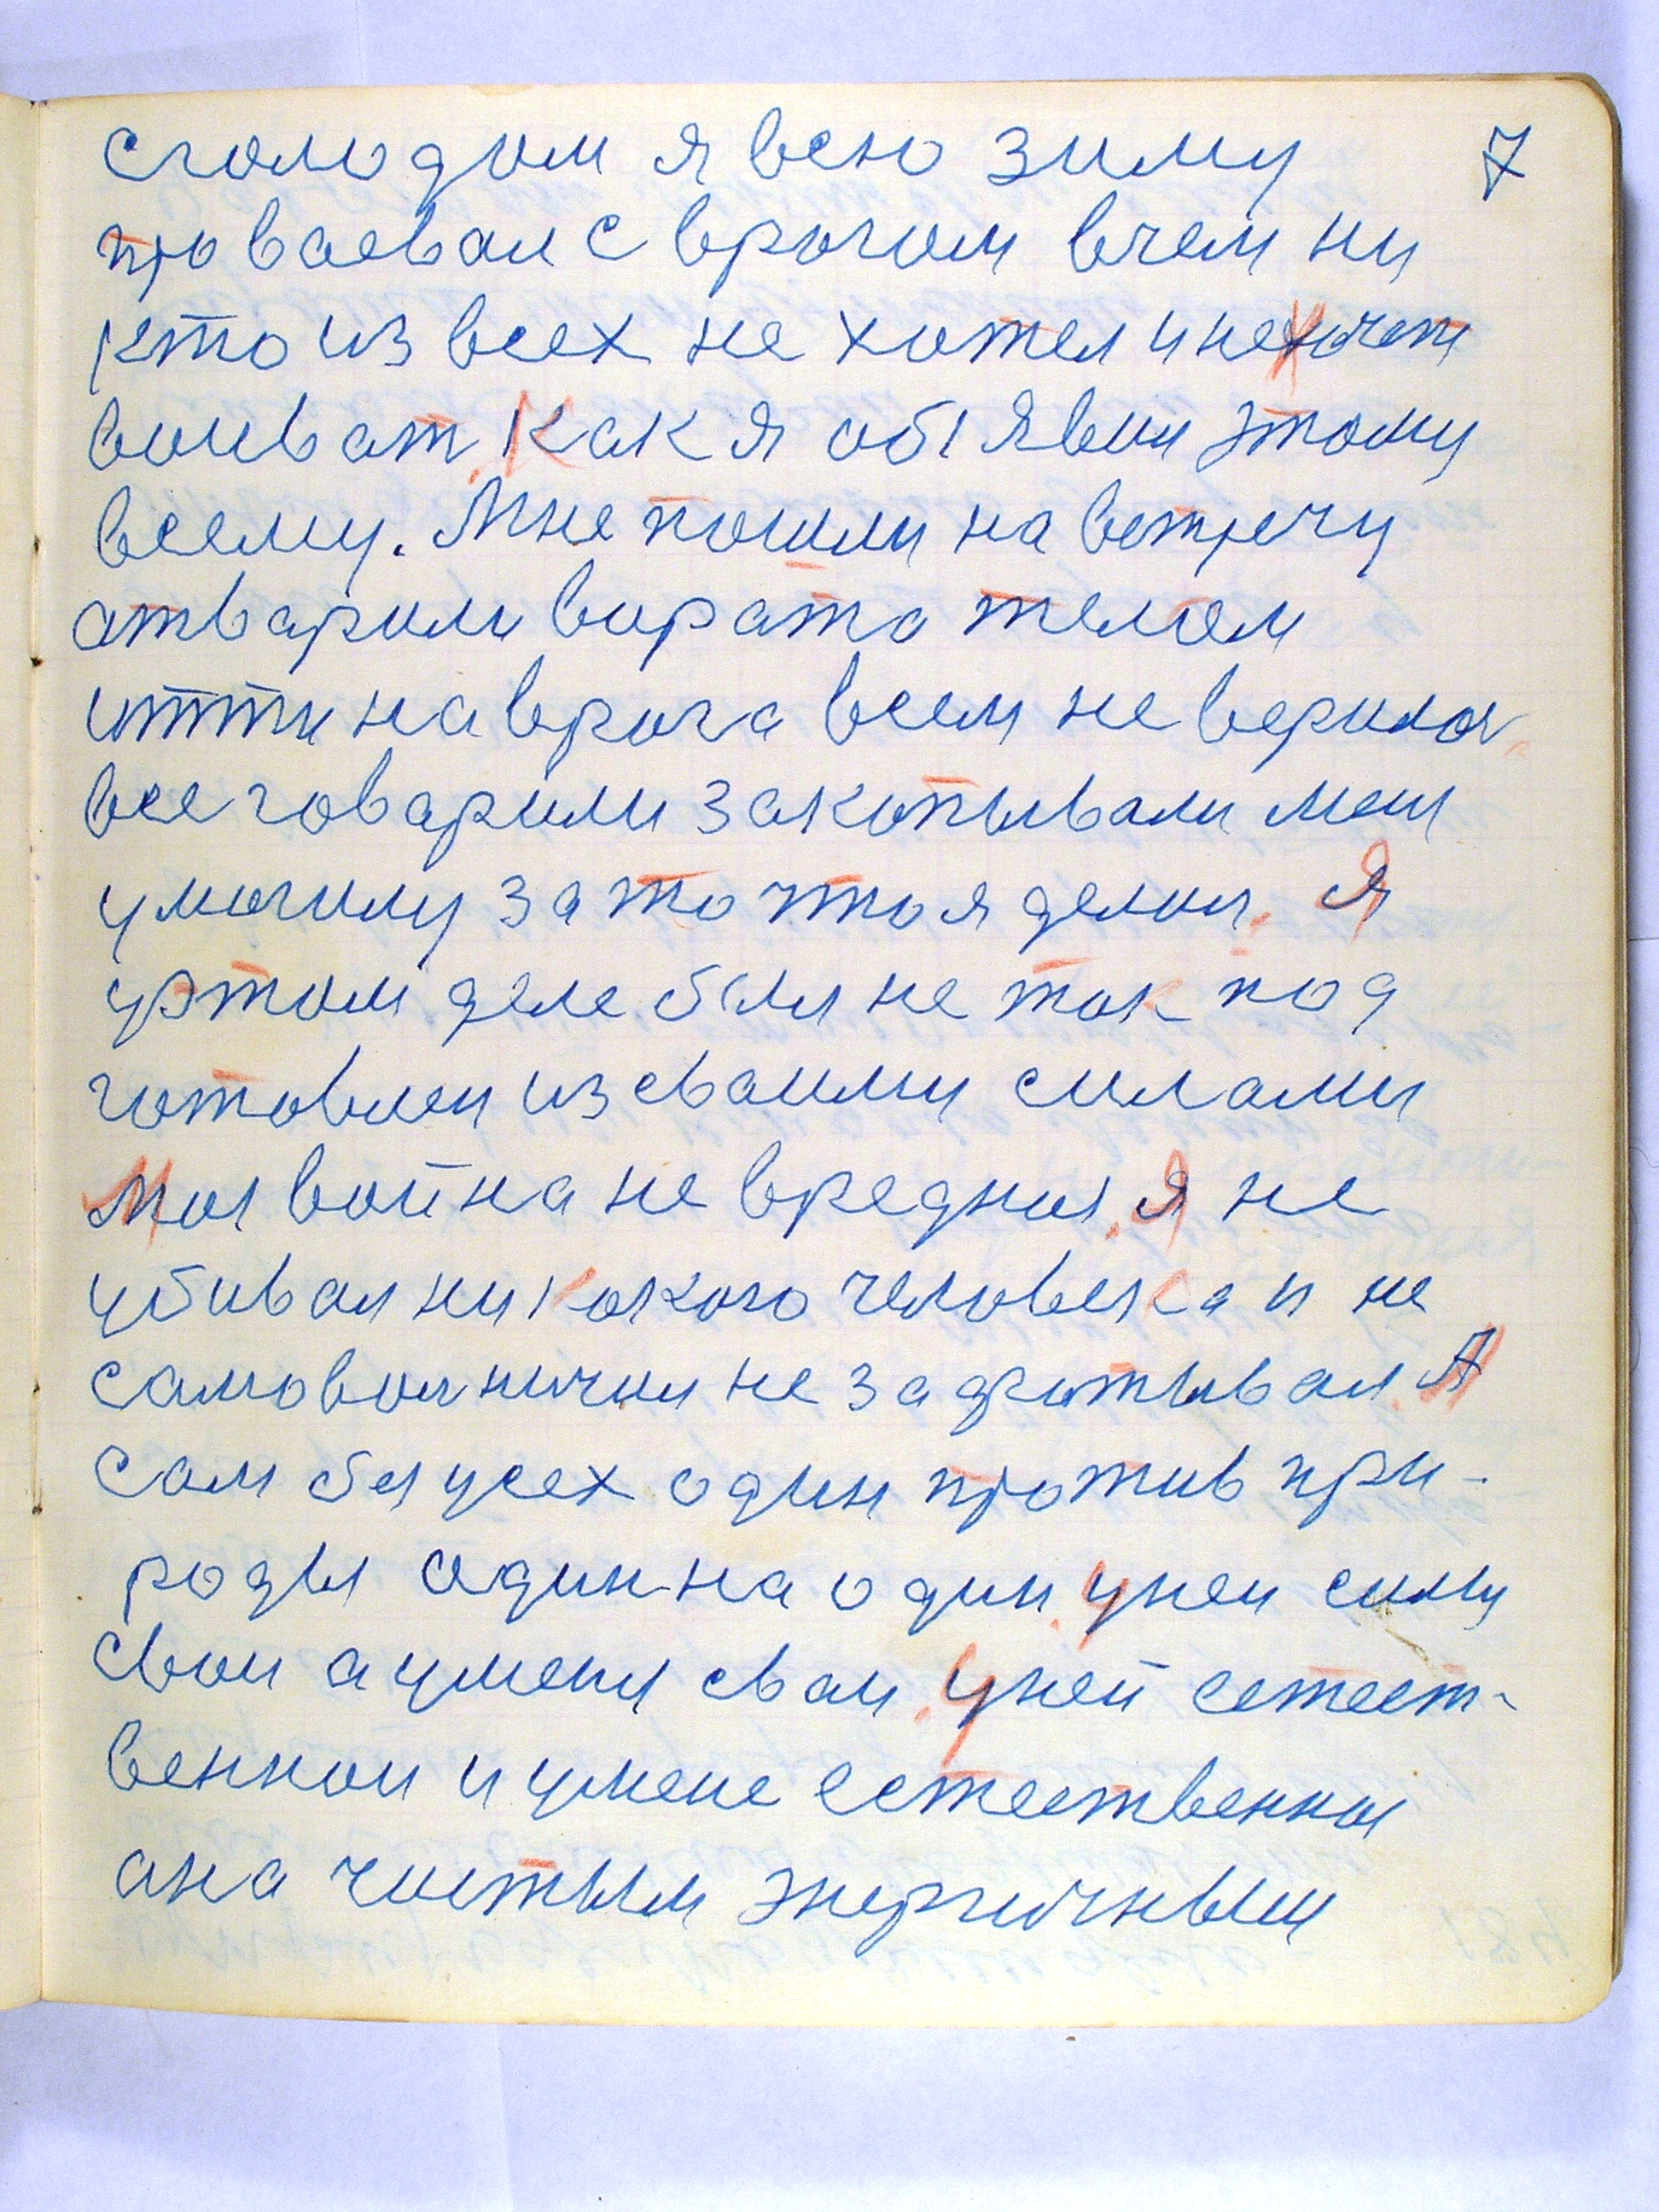 схолодом я всю зиму 7
проваевал с врагом вчем ни
кто из всех не хотел и нехочет
воиват. Как я обıявил этому
всему. Мне пошли на встречу
атварили варата телом
итти на врага всем не верилос.
все говарили закопывали меня
умогилу за то что я делил. Я
уэтом деле был не так под
готовлен из сваими силами
Моя война не вредная. Я не
убивал никокого человека и не
самоволничил не задротывал. А
сам был усех один против при-
роды один на один. Уней силы
свои а уменя сваи. Уней естест-
венной и умене естественная
ана чистым энергичным